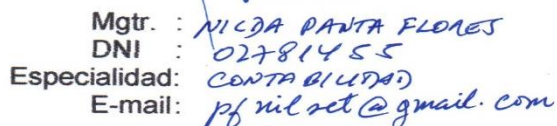 Mgtr. : NILDA PANTA FLORES
DNI : 02781455
Especialidad: CONTABILIDAD
E-mail: pfnilset@gmail.com